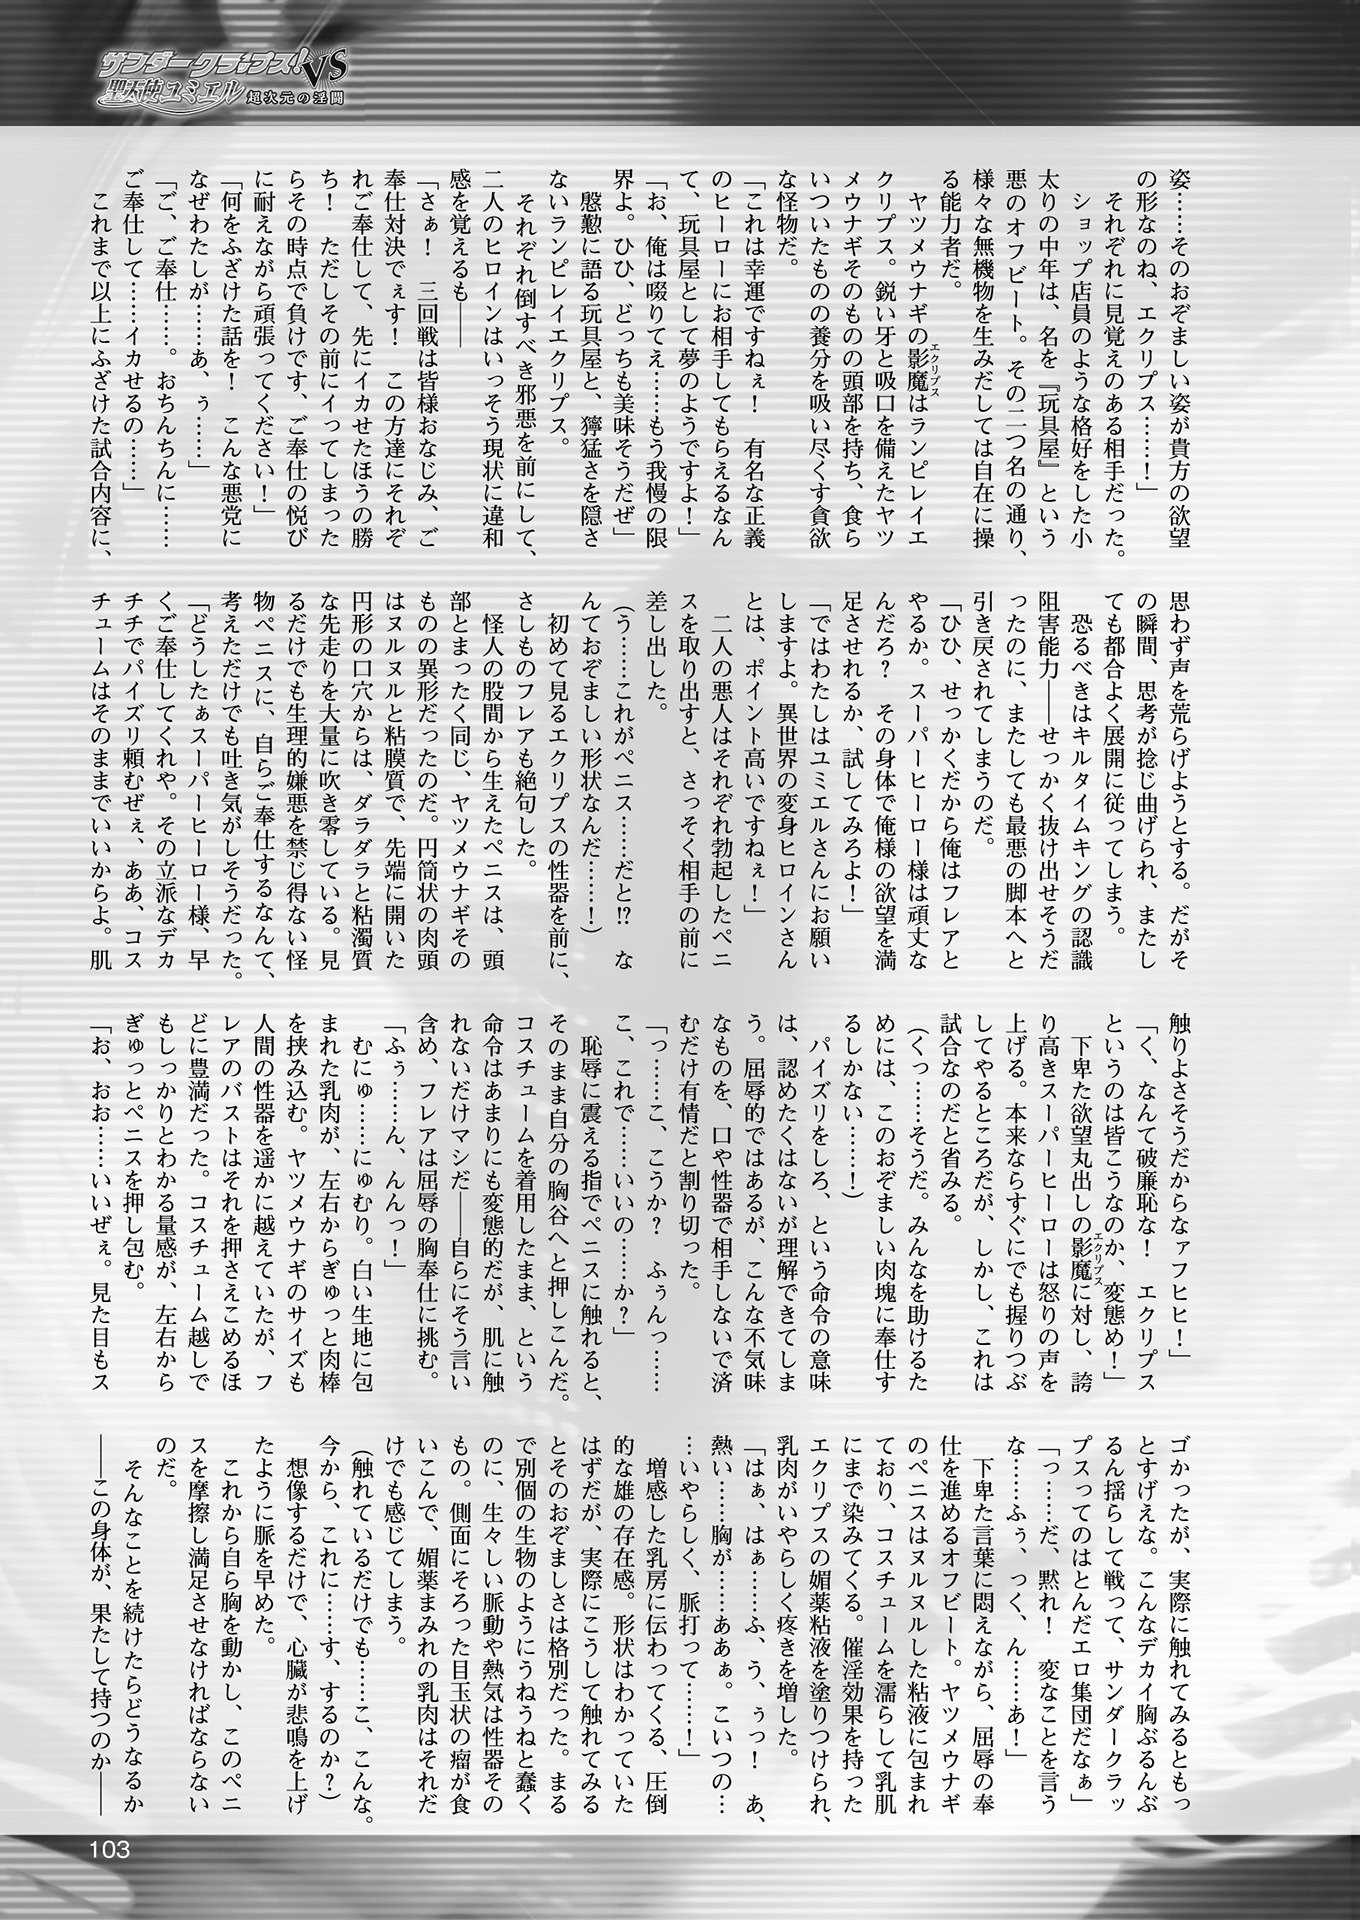 サンダークラップス!VS
聖天使ユミエル 超次元の淫闘
姿……そのおぞましい姿が貴方の欲望
の形なのね、エクリプス……！」
それぞれに見覚えのある相手だった。
ショップ店員のような格好をした小
太りの中年は、名を『玩具屋』という
悪のオフビート。その二つ名の通り、
様々な無機物を生みだしては自在に操
る能力者だ。
ヤツメウナギの影魔はランピレイエ
エクリプス
クリプス。鋭い牙と吸口を備えたヤツ
メウナギそのものの頭部を持ち、食ら
いついたものの養分を吸い尽くす貪欲
な怪物だ。
「これは幸運ですねぇ！　有名な正義
のヒーローにお相手してもらえるなん
て、玩具屋として夢のようですよ！」
「お、俺は啜りてえ……もう我慢の限
界よ。ひひ、どっちも美味そうだぜ」
慇懃に語る玩具屋と、獰猛さを隠さ
ないランピレイエクリプス。
それぞれ倒すべき邪悪を前にして、
二人のヒロインはいっそう現状に違和
感を覚えるも――
「さぁ！　三回戦は皆様おなじみ、ご
奉仕対決でぇす！　この方達にそれぞ
れご奉仕して、先にイカせたほうの勝
ち！　ただしその前にイってしまった
らその時点で負けです、ご奉仕の悦び
に耐えながら頑張ってください！」
「何をふざけた話を！　こんな悪党に
なぜわたしが……あ、ぅ……」
「ご、ご奉仕……。おちんちんに……
ご奉仕して……イカせるの……」
これまで以上にふざけた試合内容に、
思わず声を荒らげようとする。だがそ
の瞬間、思考が捻じ曲げられ、またし
ても都合よく展開に従ってしまう。
恐るべきはキルタイムキングの認識
阻害能力――せっかく抜け出せそうだ
ったのに、またしても最悪の脚本へと
引き戻されてしまうのだ。
「ひひ、せっかくだから俺はフレアと
やるか。スーパーヒーロー様は頑丈な
んだろ？　その身体で俺様の欲望を満
足させれるか、試してみろよ！」
「ではわたしはユミエルさんにお願い
しますよ。異世界の変身ヒロインさん
とは、ポイント高いですねぇ！」
二人の悪人はそれぞれ勃起したペニ
スを取り出すと、さっそく相手の前に
差し出した。
（う……これがペニス……だと!?　な
んておぞましい形状なんだ……！）
初めて見るエクリプスの性器を前に、
さしものフレアも絶句した。
怪人の股間から生えたペニスは、頭
部とまったく同じ、ヤツメウナギその
ものの異形だったのだ。円筒状の肉頭
はヌルヌルと粘膜質で、先端に開いた
円形の口穴からは、ダラダラと粘濁質
な先走りを大量に吹き零している。見
るだけでも生理的嫌悪を禁じ得ない怪
物ペニスに、自らご奉仕するなんて、
考えただけでも吐き気がしそうだった。
「どうしたぁスーパーヒーロー様、早
くご奉仕してくれや。その立派なデカ
チチでパイズリ頼むぜぇ、ああ、コス
チュームはそのままでいいからよ。肌
触りよさそうだからなァフヒヒ！」
「く、なんて破廉恥な！　エクリプス
というのは皆こうなのか、変態め！」
下卑た欲望丸出しの影魔に対し、誇
エクリプス
り高きスーパーヒーローは怒りの声を
上げる。本来ならすぐにでも握りつぶ
してやるところだが、しかし、これは
試合なのだと省みる。
（くっ……そうだ。みんなを助けるた
めには、このおぞましい肉塊に奉仕す
るしかない……！）
パイズリをしろ、という命令の意味
は、認めたくはないが理解できてしま
う。屈辱的ではあるが、こんな不気味
なものを、口や性器で相手しないで済
むだけ有情だと割り切った。
「っ……こ、こうか？　ふぅんっ……
こ、これで……いいの……か？」
恥辱に震える指でペニスに触れると、
そのまま自分の胸谷へと押しこんだ。
コスチュームを着用したまま、という
命令はあまりにも変態的だが、肌に触
れないだけマシだ――自らにそう言い
含め、フレアは屈辱の胸奉仕に挑む。
「ふぅ……ん、んんっ！」
むにゅ……にゅむり。白い生地に包
まれた乳肉が、左右からぎゅっと肉棒
を挟み込む。ヤツメウナギのサイズも
人間の性器を遥かに越えていたが、フ
レアのバストはそれを押さえこめるほ
どに豊満だった。コスチューム越しで
もしっかりとわかる量感が、左右から
ぎゅっとペニスを押し包む。
「お、おお……いいぜぇ。見た目もス
ゴかったが、実際に触れてみるともっ
とすげえな。こんなデカイ胸ぶるんぶ
るん揺らして戦って、サンダークラッ
プスってのはとんだエロ集団だなぁ」
「っ……だ、黙れ！　変なことを言う
な……ふぅ、っく、ん……あ！」
下卑た言葉に悶えながら、屈辱の奉
仕を進めるオフビート。ヤツメウナギ
のペニスはヌルヌルした粘液に包まれ
ており、コスチュームを濡らして乳肌
にまで染みてくる。催淫効果を持った
エクリプスの媚薬粘液を塗りつけられ、
乳肉がいやらしく疼きを増した。
「はぁ、はぁ……ふ、う、ぅっ！　あ、
熱い……胸が……ああぁ。こいつの…
…いやらしく、脈打って……！」
増感した乳房に伝わってくる、圧倒
的な雄の存在感。形状はわかっていた
はずだが、実際にこうして触れてみる
とそのおぞましさは格別だった。まる
で別個の生物のようにうねうねと蠢く
のに、生々しい脈動や熱気は性器その
もの。側面にそろった目玉状の瘤が食
いこんで、媚薬まみれの乳肉はそれだ
けでも感じてしまう。
（触れているだけでも……こ、こんな。
今から、これに……す、するのか？）
想像するだけで、心臓が悲鳴を上げ
たように脈を早めた。
これから自ら胸を動かし、このペニ
スを摩擦し満足させなければならない
のだ。
そんなことを続けたらどうなるか
――この身体が、果たして持つのか――
103